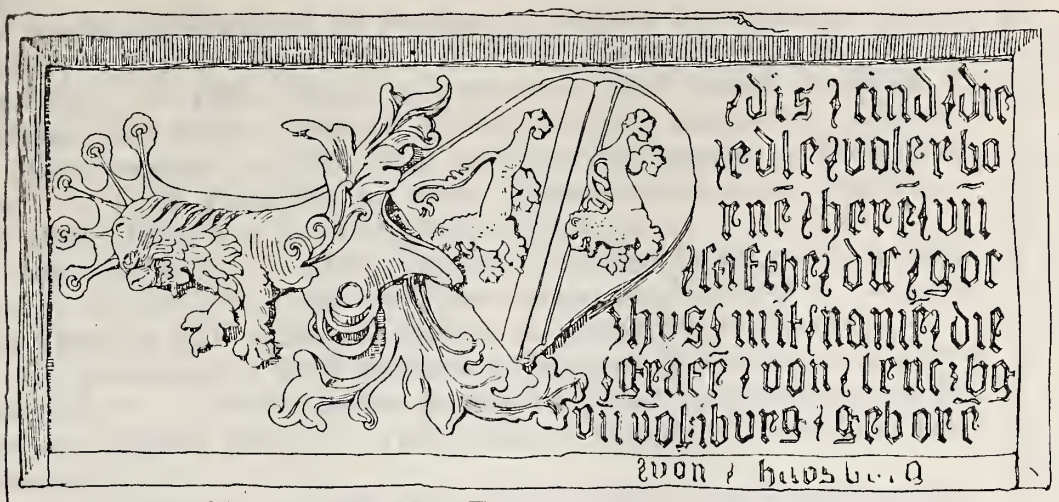 dis cind die
edle volerbo
rnē herē vn̄
stifthe dis goc
hus mit namē die
grafē von lenczbg
vn̄ vō kiburg geborē
von habsburg